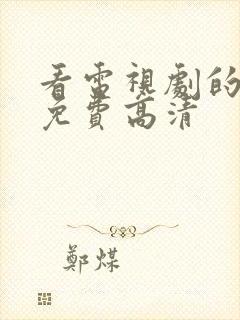 看電視劇的
免費高清
鄭煤